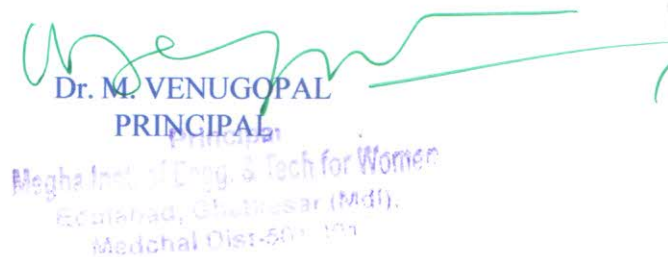 Dr. M. VENUGOPAL
PRINCIPAL
Principal
Megha Inst. of Engg. & Tech for Women
Edulabad, Ghatkesar (Mdl),
Medchal Dist-501